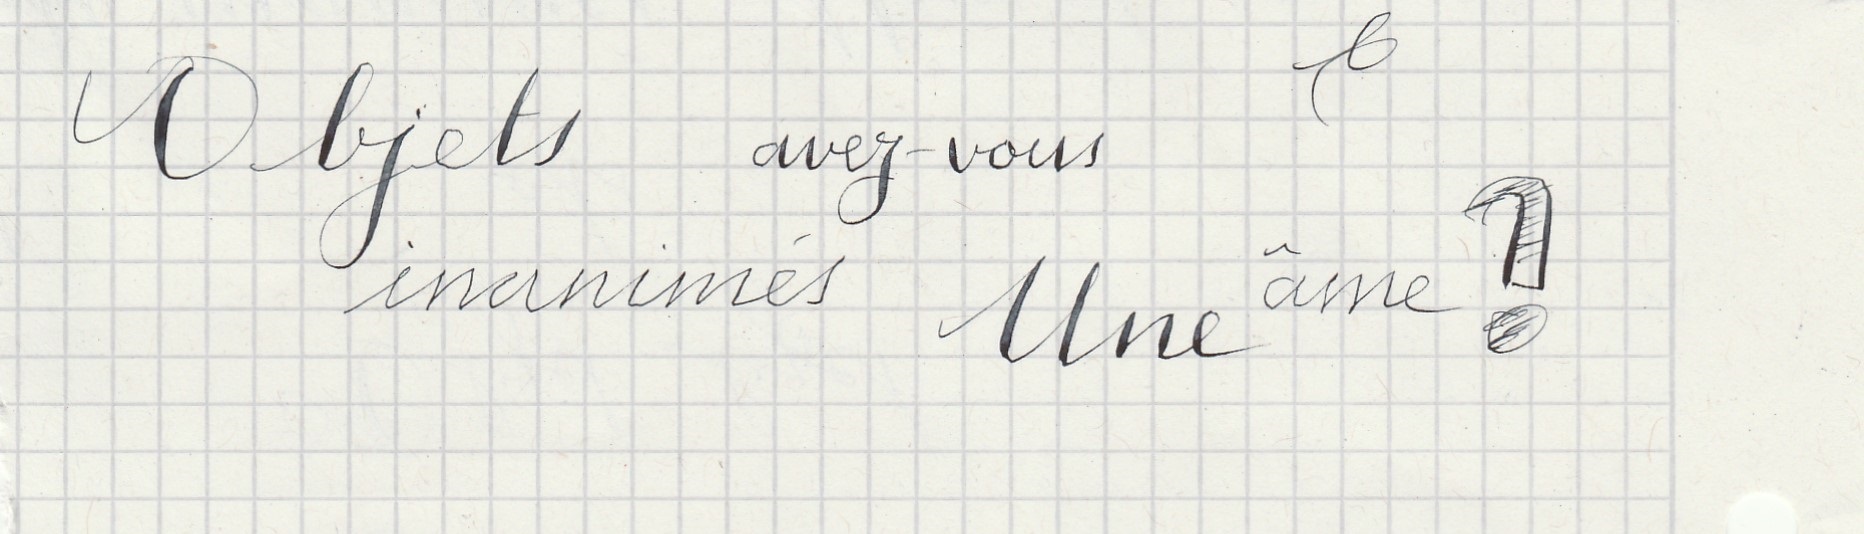 Objets avez-vous
inanimés Une âme ?